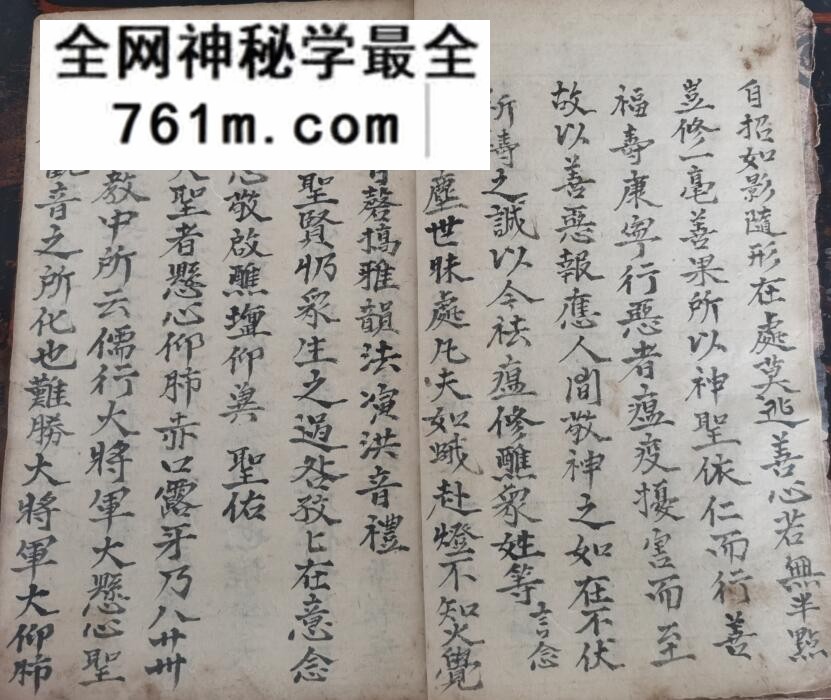 全网神秘学最全
761m.com
自招如影隨形在處莫逃善心若無半點
豈修一毫善果所以神聖依仁而行善
福壽康寧行惡者瘟疫擾害而至
故以善惡報應人間敬神之如在不伏
祈壽之誠以今祛瘟修醮衆姓等言念
塵世昧處凡夫如蛾赴燈不知火覺
磬搗雅韻法演洪音禮
聖賢仍衆生之過咎孜匕在意念
心敬啟醮壇仰兾 聖佑
大聖者懸心仰肺赤口露牙乃八廿卅
教中所云儒行大將軍大懸心聖
觀音之所化也難勝大將軍大仰肺